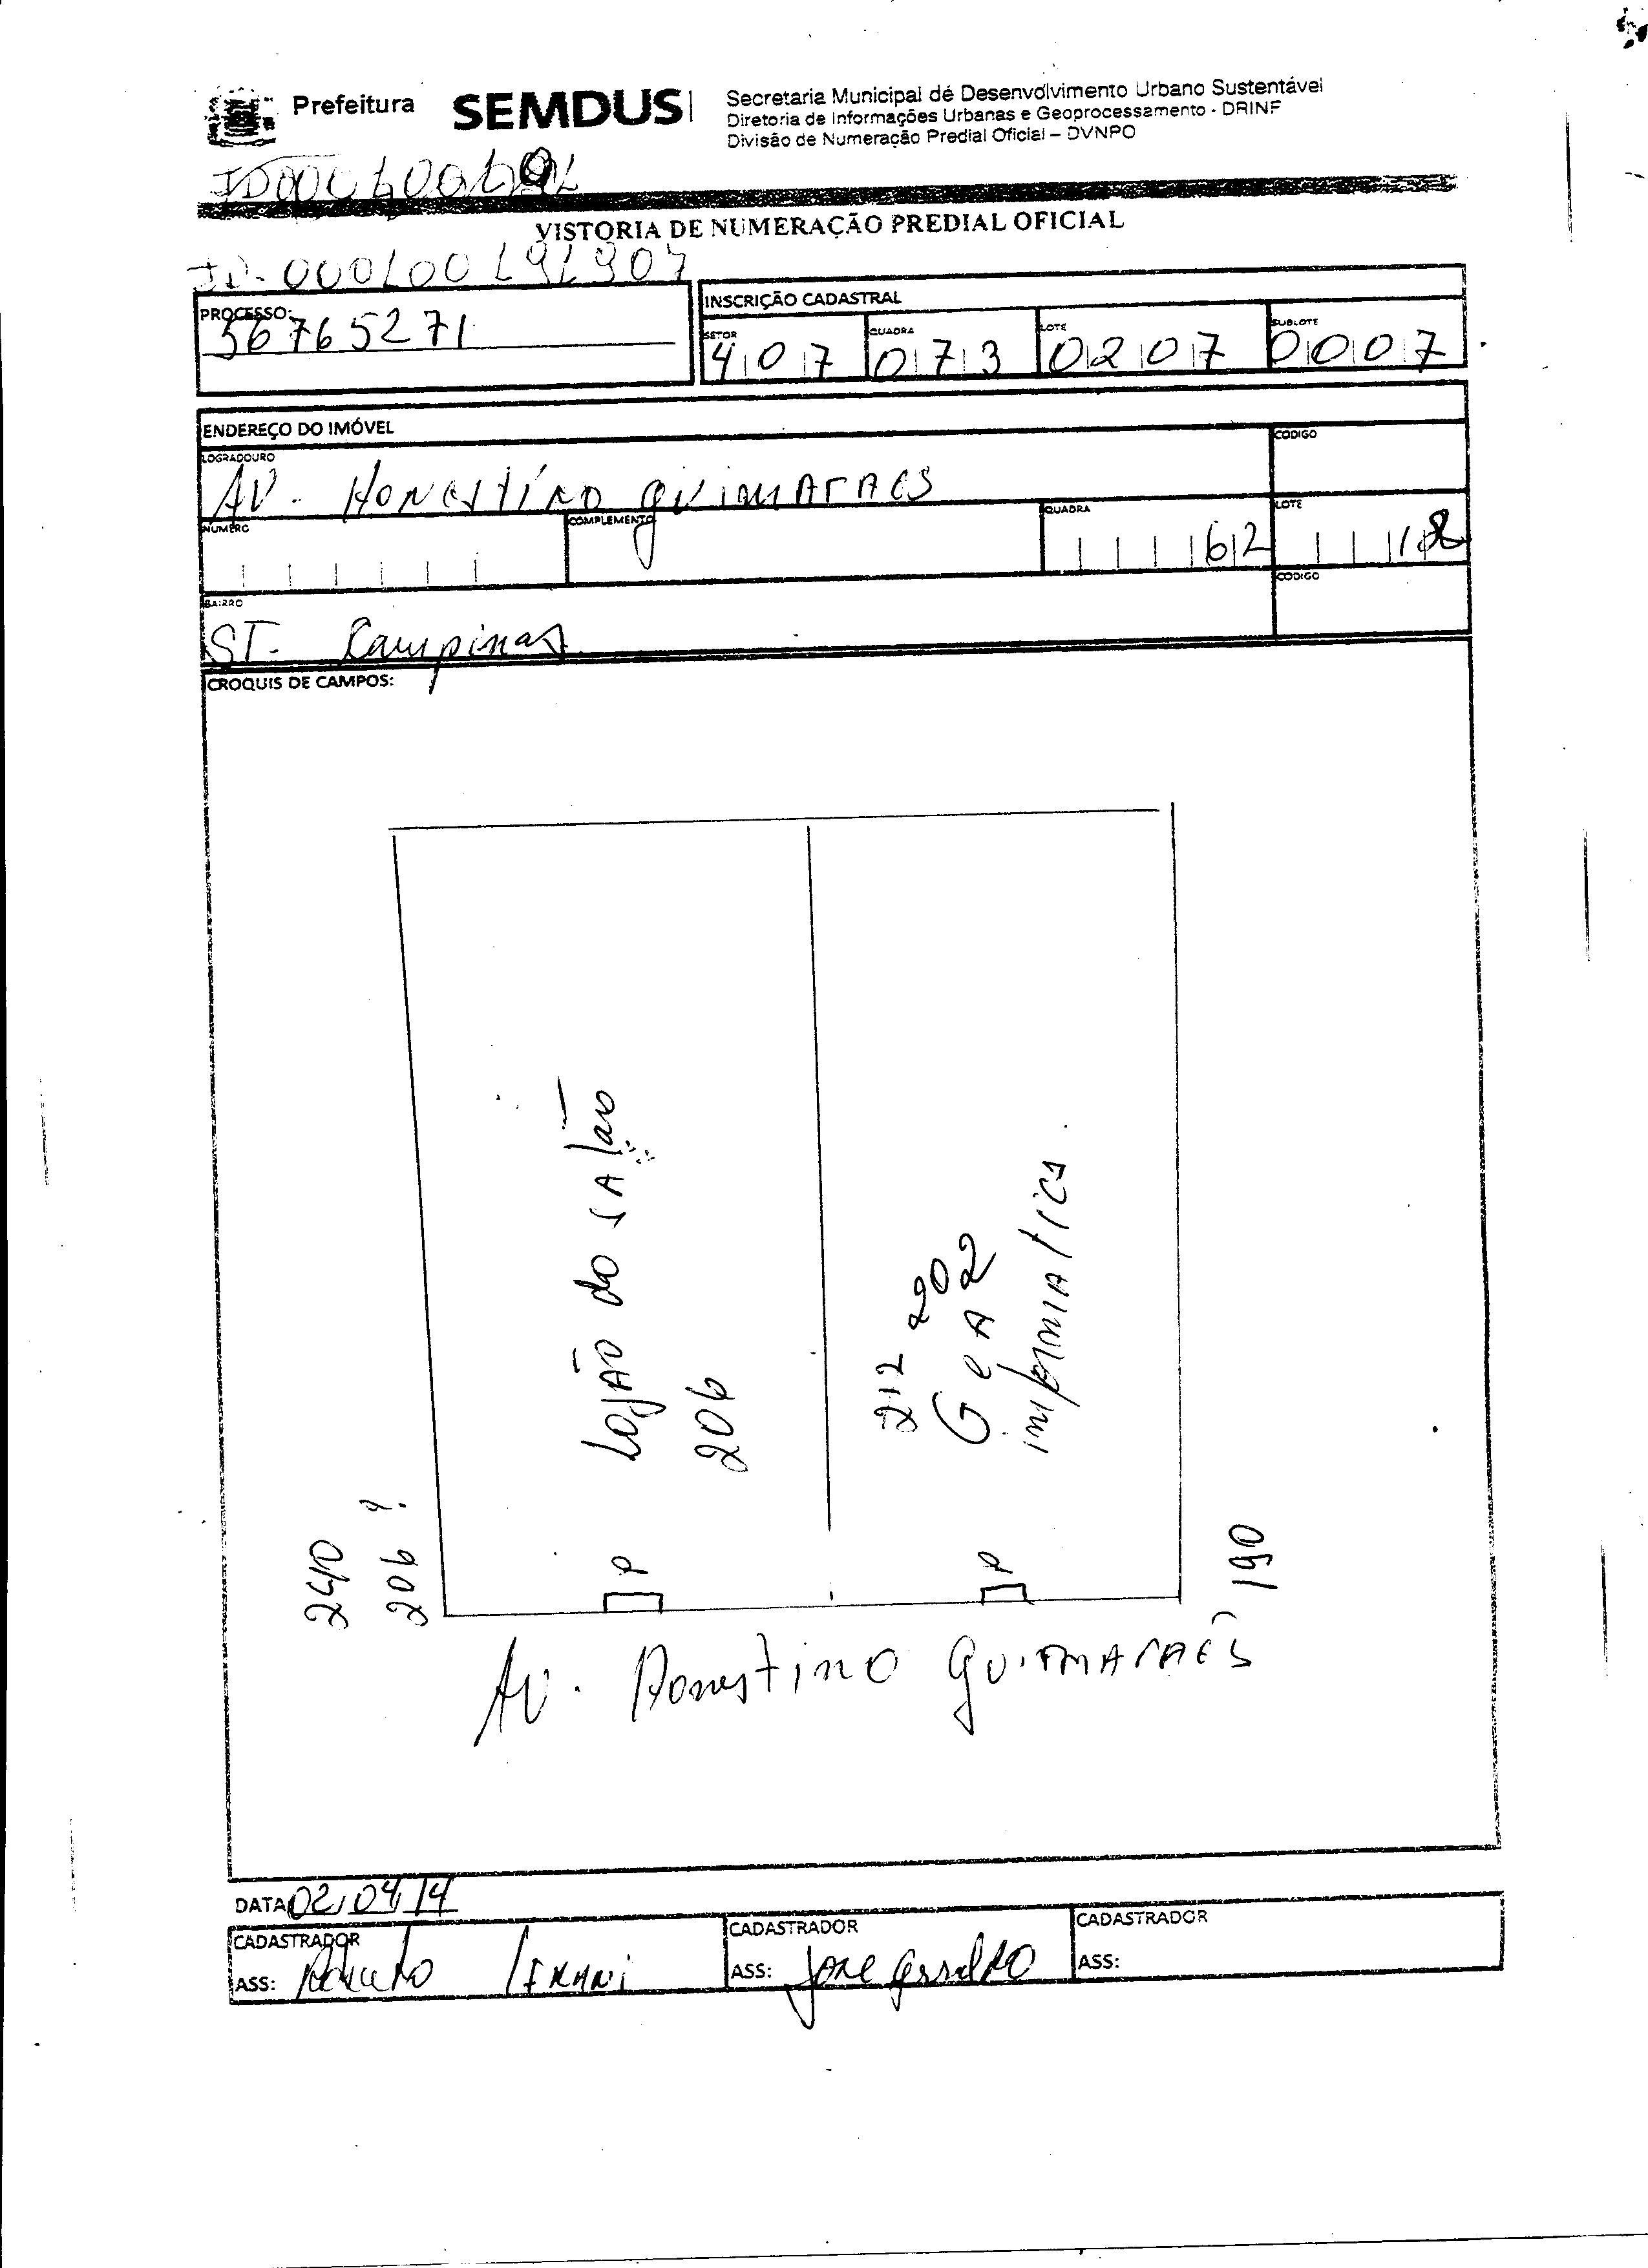 Prefeitura SEMDUS
Secretaria Municipal de Desenvolvimento Urbano Sustentável
Diretoria de Informações Urbanas e Geoprocessamento - DRINF
Divisão de Numeração Predial Oficial – DVNPO
VISTORIA DE NUMERAÇÃO PREDIAL OFICIAL
PROCESSO:
56765271
INSCRIÇÃO CADASTRAL
SETOR QUADRA LOTE SUBLOTE
407 073 0207 0007
ENDEREÇO DO IMÓVEL
LOGRADOURO CÓDIGO
AV. HONESTINO GUIMARAES
NÚMERO COMPLEMENTO QUADRA LOTE
62 18
BAIRRO CÓDIGO
ST. Campinas
CROQUIS DE CAMPOS:
LOJÃO do SALÃO
206
212 202
G e A 2
informatica
240
206 ?
P
P
190
AV. Honestino GUIMARAES
DATA 02/04/14
CADASTRADOR
ASS:
CADASTRADOR
ASS: JOSE Geraldo
CADASTRADOR
ASS: